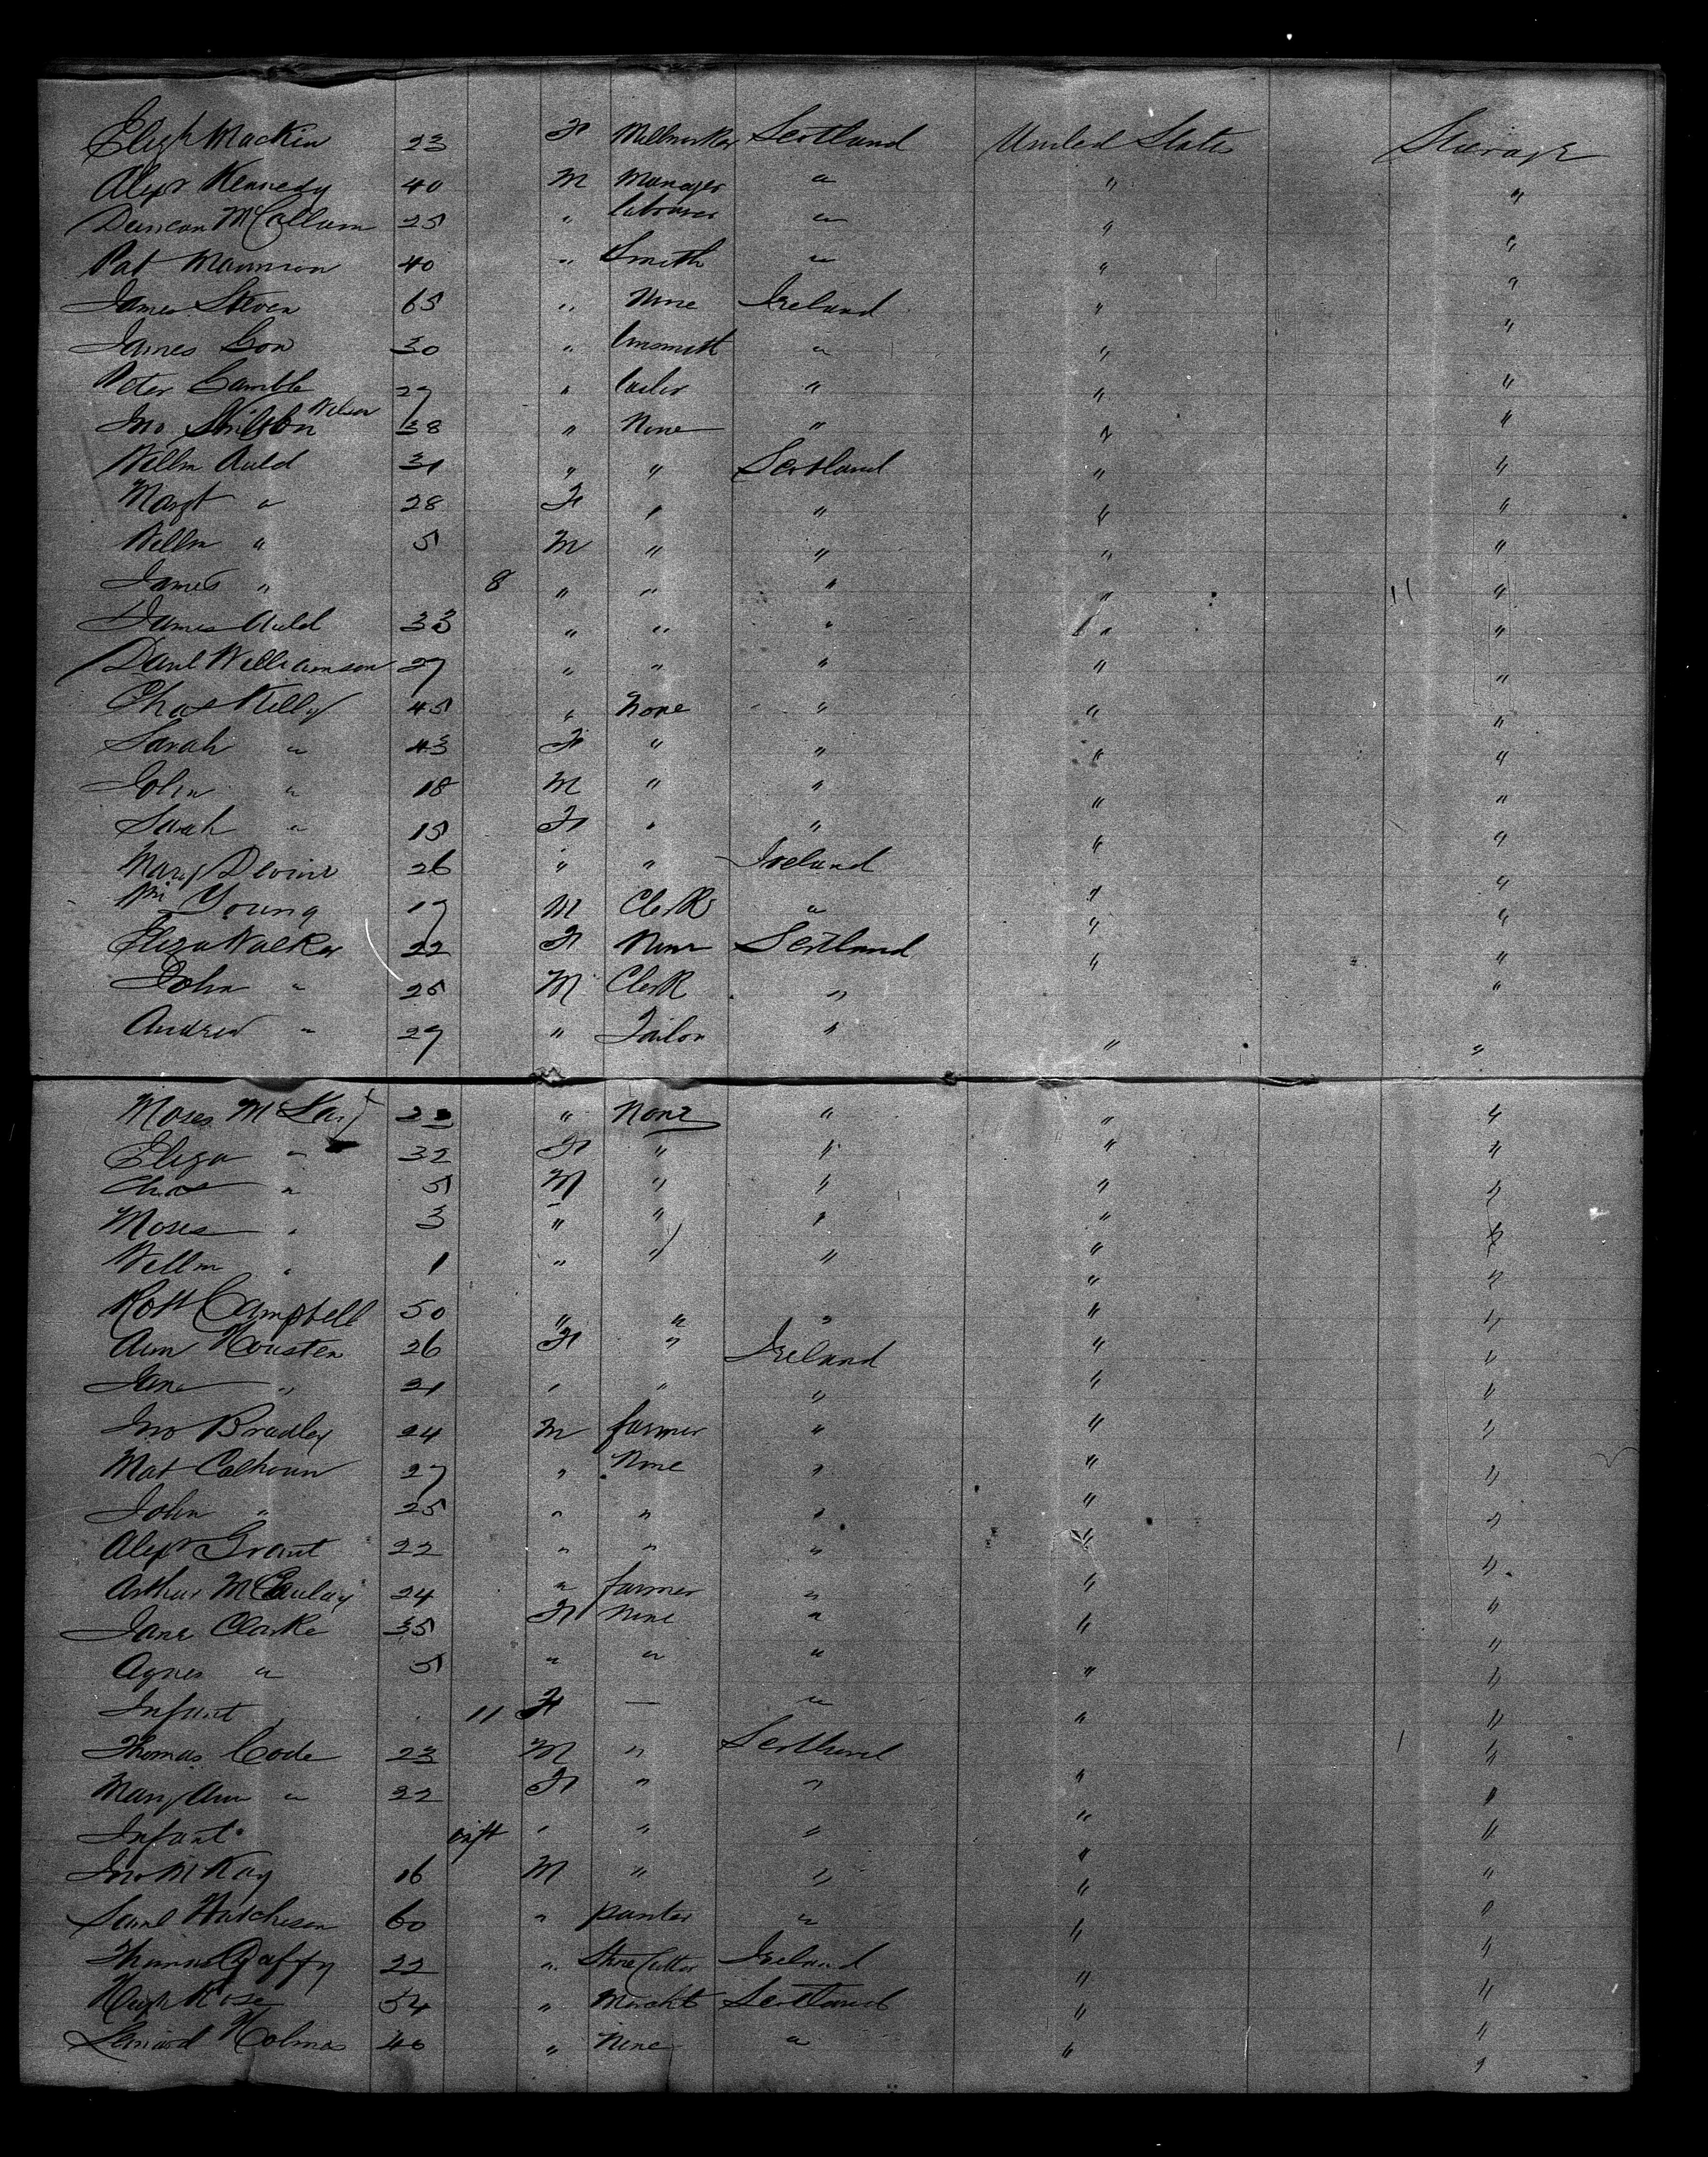 Elizh Mackin 23 F Millworker Scotland United States Steerage
Alexr Kennedy 40 M Manager " " "
Duncan McCallum 25 " labourer " " "
Pat 40 " Smith " " "
James Steven 65 " None Ireland " "
James Gow 30 " tinsmith " " "
Peter Gamble 27 " " " "
Jno. Wilson 38 " None " " "
Willm Auld 31 " " Scotland " "
Margt " 28 F " " " "
Willm " 5 M " " " "
James " 8 " " " " 11 "
James Auld 33 " " " " "
Danl Williamson 27 " " " " "
Chas Kelly 45 " None " " "
Sarah " 43 F " " " "
John " 18 M " " " "
Sarah " 15 F " " " "
Mary Devine 26 " " Ireland " "
Wm Young 17 M Clerk " " "
Eliza Walker 22 F None Scotland " "
John " 25 M Clerk " " "
Andrew " 27 " Tailor " " "
Moses 22 " None " " "
Eliza " 32 F " " " "
Chas " 5 M " " " "
Moses " 3 " " " " "
Willm " 1 " " " " "
Robt Campbell 50 " " " " "
Ann Housten 26 F " Ireland " "
Jane " 21 " " " " "
Jno Bradley 24 M farmer " " "
Mat Calhoun 27 " None " " "
John " 25 " " " " "
Alexr Grant 22 " " " " "
Arthur McCaulay 24 " farmer " " "
Jane Clarke 35 F None " " "
Agnes " 5 " " " " "
Infant 11 F — " " "
Thomas Code 23 M " Scotland 1 "
Mary Ann " 22 F " " " "
Infant inft " " " " "
Jno McKay 16 M " " " "
Saml Hutcheson 60 " panter " " "
Thomas Gaffy 22 " Stone Cutter Ireland " "
Hugh Rose 54 " Marcht Scotland " "
Lenard Holmes 40 " None " " "